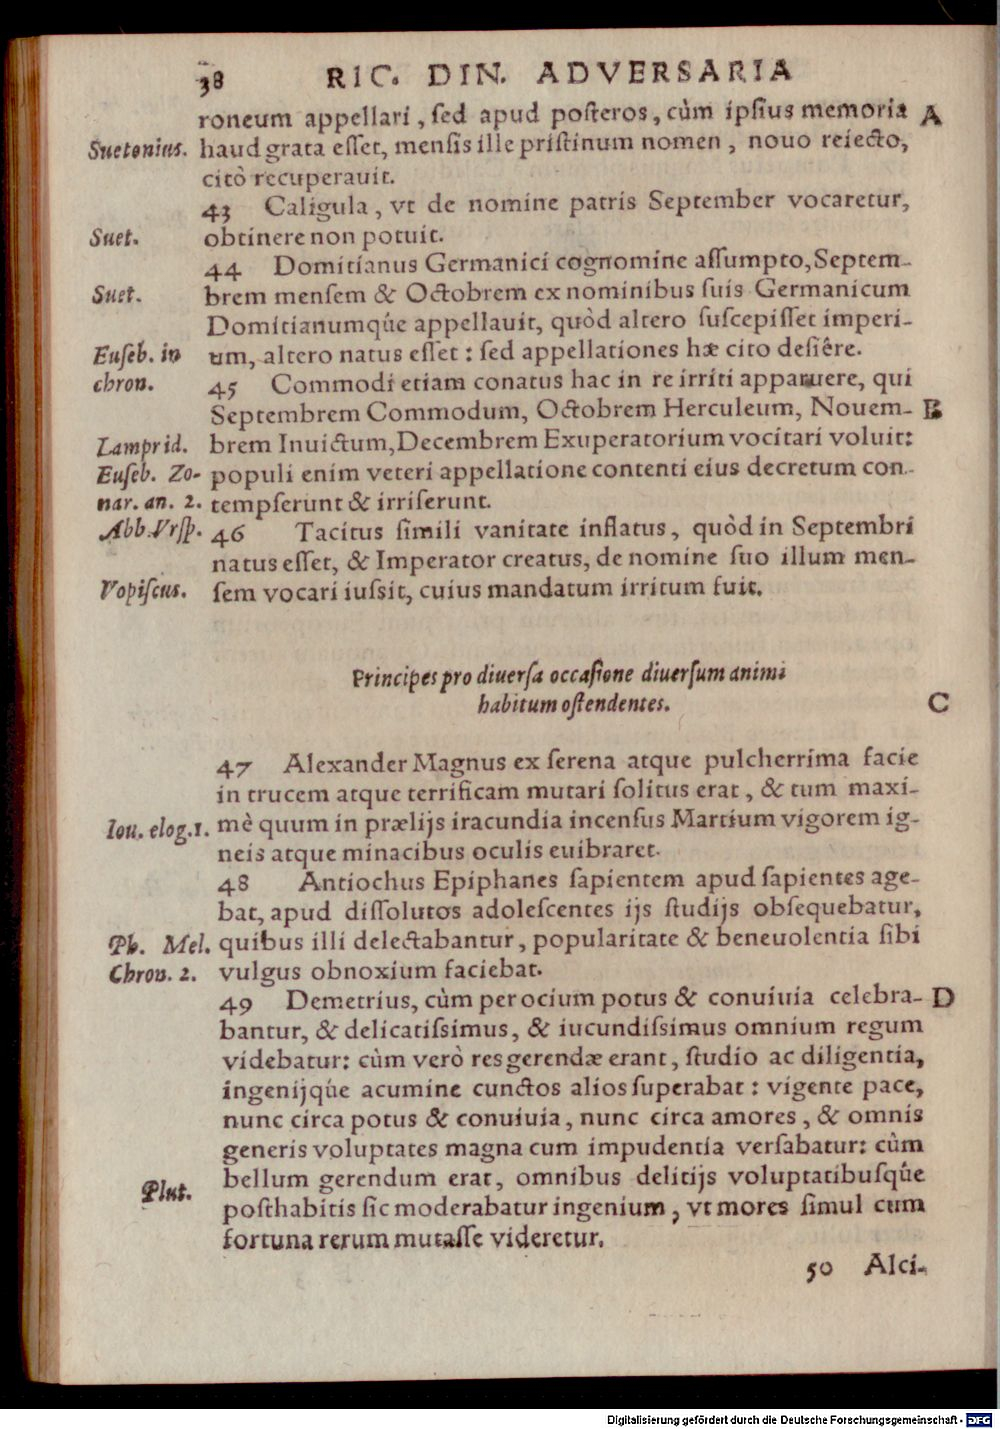 38 RIC. DIN. ADVERSARIA
roneum appellari, sed apud posteros, cùm ipsius memoria A
Suetonius. haud grata esset, mensis ille pristinum nomen, nouo reiecto,
citò recuperauit.
43 Caligula, vt de nomine patris September vocaretur,
Suet. obtinere non potuit.
44 Domitianus Germanici cognomine assumpto, Septem-
Suet. brem mensem & Octobrem ex nominibus suis Germanicum
Domitianumqûe appellauit, quòd altero suscepisset imperi-
Euseb. in um, altero natus esset: sed appellationes hæ cito desiêre.
chron. 45 Commodi etiam conatus hac in re irriti apparuere, qui
Septembrem Commodum, Octobrem Herculeum, Nouem- B
Lamprid. brem Inuictum, Decembrem Exuperatorium vocitari voluit:
Euseb. Zo- populi enim veteri appellatione contenti eius decretum con-
nar. an. 2. tempserunt & irriserunt.
Abb. Vrsp. 46 Tacitus simili vanitate inflatus, quòd in Septembri
natus esset, & Imperator creatus, de nomine suo illum men-
Vopiscus. sem vocari iussit, cuius mandatum irritum fuit.
Principes pro diuersa occasione diuersum animi
habitum ostendentes. C
47 Alexander Magnus ex serena atque pulcherrima facie
in trucem atque terrificam mutari solitus erat, & tum maxi-
Iou. elog. 1. mè quum in prælijs iracundia incensus Martium vigorem ig-
neis atque minacibus oculis euibraret.
48 Antiochus Epiphanes sapientem apud sapientes age-
bat, apud dissolutos adolescentes ijs studijs obsequebatur,
Ph. Mel. quibus illi delectabantur, popularitate & beneuolentia sibi
Chron. 2. vulgus obnoxium faciebat.
49 Demetrius, cùm per ocium potus & conuiuia celebra- D
bantur, & delicatissimus, & iucundissimus omnium regum
videbatur: cùm verò res gerendæ erant, studio ac diligentia,
ingenijqûe acumine cunctos alios superabat: vigente pace,
nunc circa potus & conuiuia, nunc circa amores, & omnis
generis voluptates magna cum impudentia versabatur: cùm
bellum gerendum erat, omnibus delitijs voluptatibusqûe
Plut. posthabitis sic moderabatur ingenium, vt mores simul cum
fortuna rerum mutasse videretur.
50 Alci-
Digitalisierung gefördert durch die Deutsche Forschungsgemeinschaft - DFG